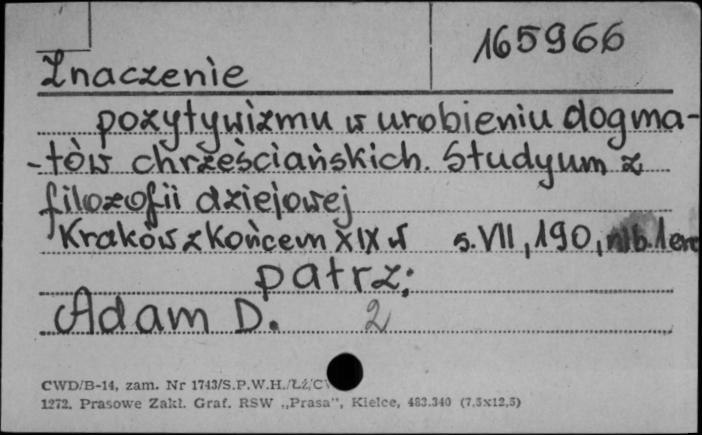 165966
Znaczenie
pozytywizmu w urobieniu dogma-
-tów chrześciańskich. Studyum z
filozofii dziejowej
Kraków z końcem XIX w s. VII, 190, nlb. 1
patrz:
Adam D. 2
CWD/B-14, zam. Nr 1743/S.P.W.H./Łż/
1272. Prasowe Zakł. Graf. RSW „Prasa", Kielce, 483.340 (7,5x12,5)